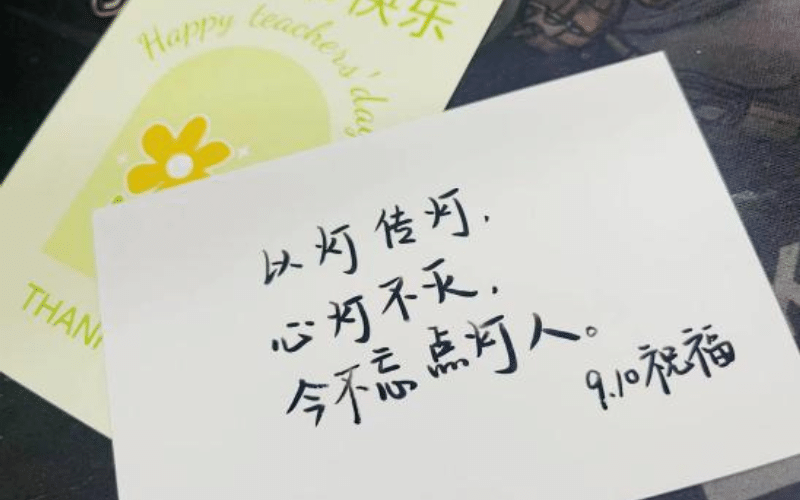 快乐
Happy teachers' day
THAN
以灯传灯,
心灯不灭,
今不忘点灯人。
9.10祝福